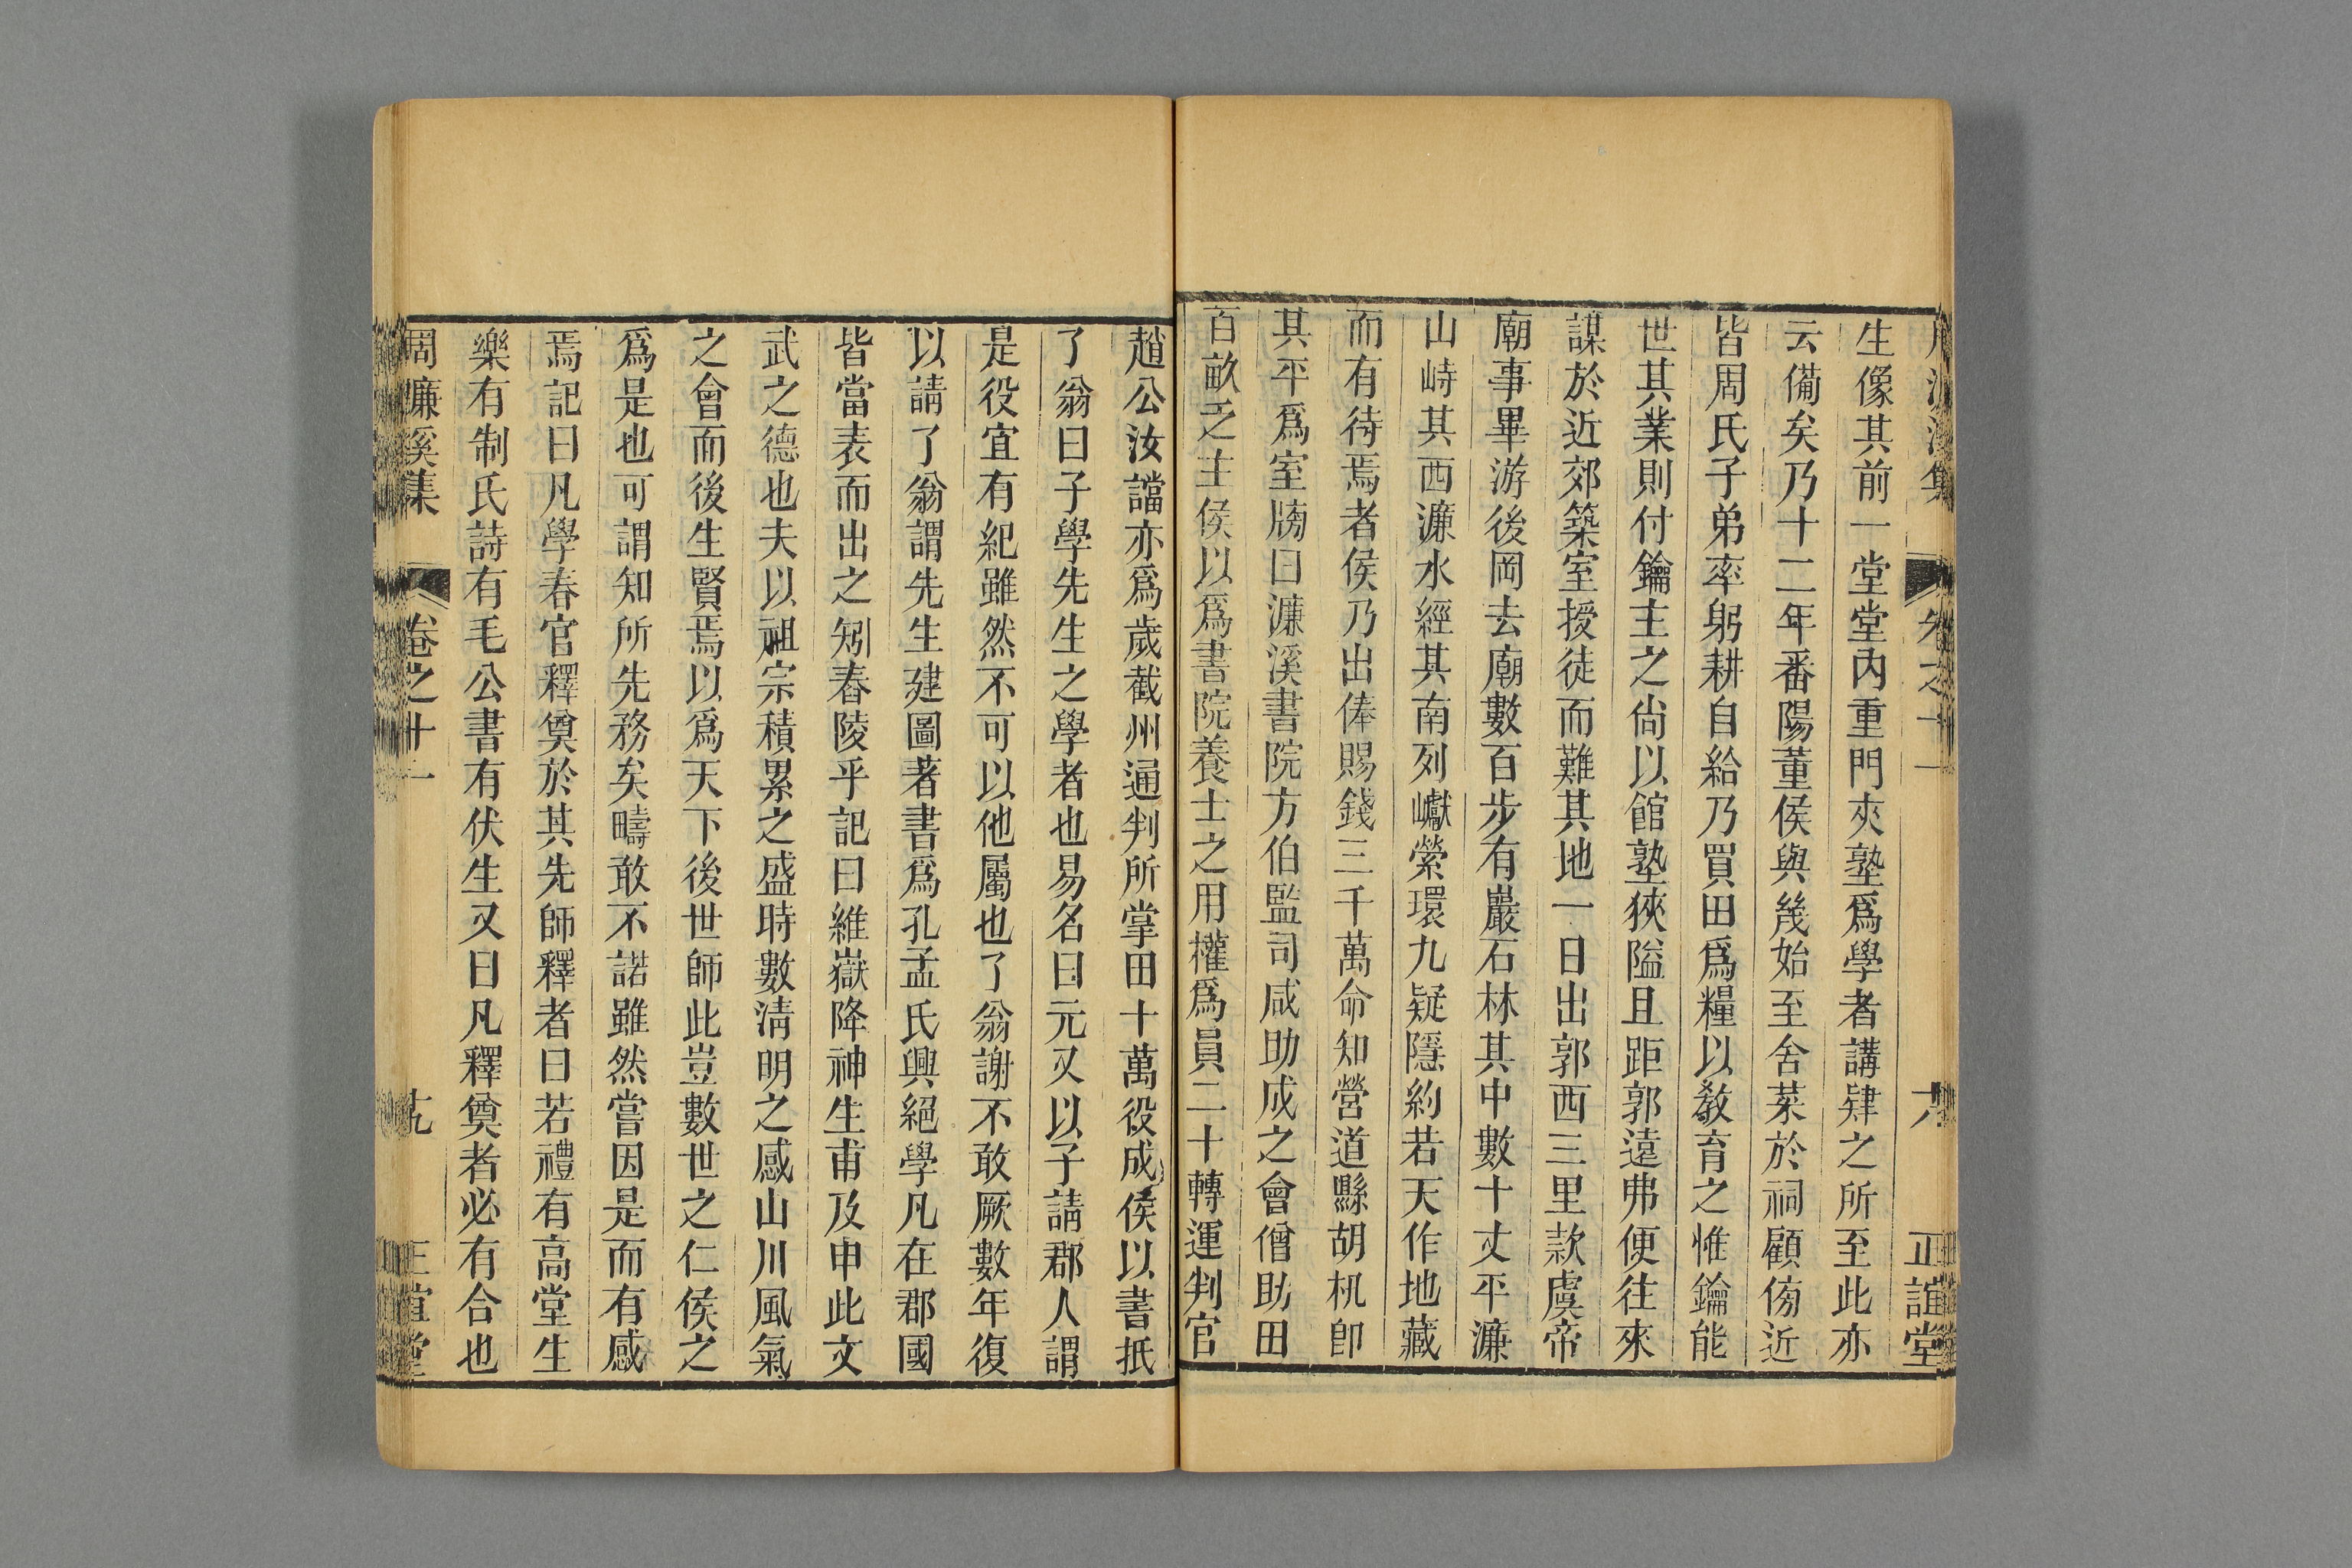 生像其前一堂堂內重門夾塾爲學者講肄之所至此亦
云備矣乃十二年番陽董侯與幾始至舍菜於祠顧傍近
皆周氏子弟率躬耕自給乃買田爲糧以敎育之惟鑰能
世其業則付鑰主之尙以館塾狹隘且距郭遠弗便往來
謀於近郊築室授徒而難其地一日出郭西三里款虞帝
廟事畢游後岡去廟數百步有巖石林其中數十丈平濂
山峙其西濂水經其南列巘縈環九疑隱約若天作地藏
而有待焉者侯乃出俸賜錢三千萬命知營道縣胡杋卽
其平爲室牓曰濂溪書院方伯監司咸助成之會僧助田
百畝乏主侯以爲書院養士之用權爲員二十轉運判官
趙公汝譡亦爲歲截州通判所掌田十萬役成侯以書抵
了翁曰子學先生之學者也易名曰元又以子請郡人謂
是役宜有紀雖然不可以他屬也了翁謝不敢厥數年復
以請了翁謂先生建圖著書爲孔孟氏興絕學凡在郡國
皆當表而出之矧舂陵乎記曰維嶽降神生甫及申此文
武之德也夫以祖宗積累之盛時數淸明之感山川風氣
之會而後生賢焉以爲天下後世師此豈數世之仁侯之
爲是也可謂知所先務矣疇敢不諾雖然嘗因是而有感
焉記曰凡學春官釋奠於其先師釋者曰若禮有高堂生
樂有制氏詩有毛公書有伏生又曰凡釋奠者必有合也
周濂溪集 卷之十一 十九 正誼堂